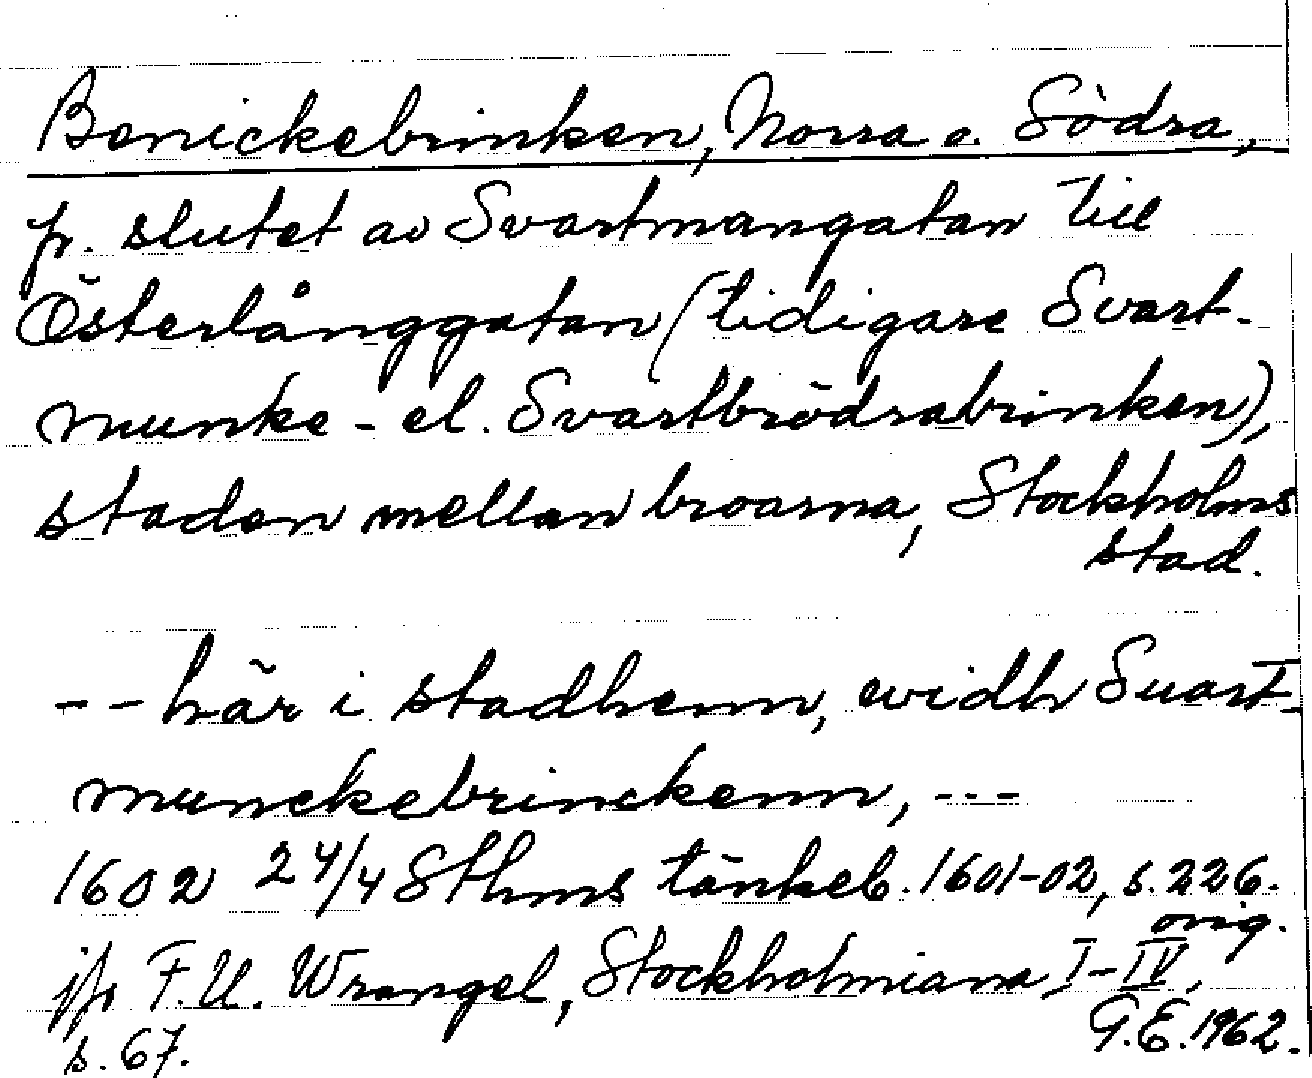 Benickebrinken, Norra o. Södra,
fr. slutet av Svartmangatan till
Österlånggatan (tidigare Svart-
munke- el. Svartbrödrabrinken),
staden mellan broarna, Stockholms
stad.
-- här i stadhenn, widh Suart-
munckebrinckenn, ---
1602 24/4 Sthms tänkeb. 1601-02, s. 226.
orig.
jfr F.U. Wrangel, Stockholmiana I-IV,
s. 67.
G.E. 1962.